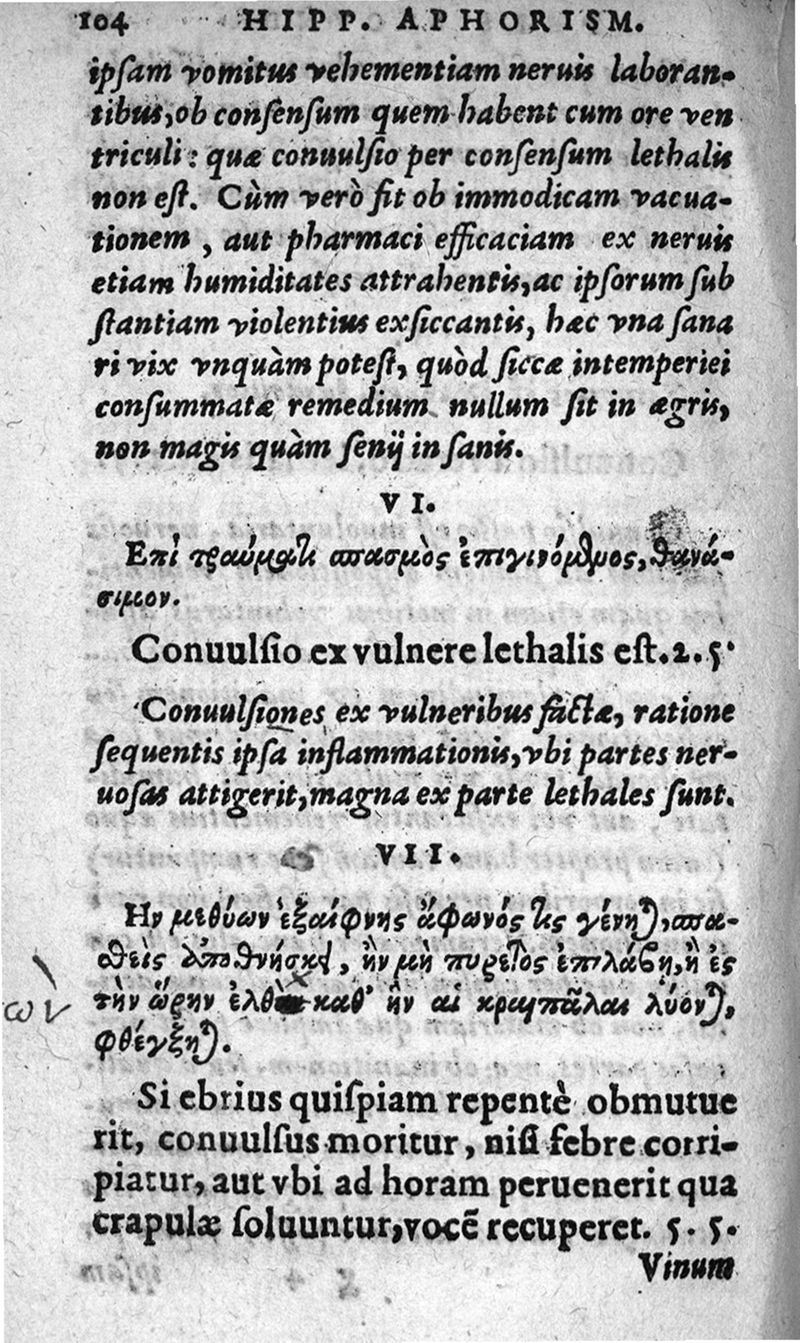 104 HIPP. APHORISM.
ipſam vomitus vehementiam neruis laboran-
tibus, ob conſenſum quem habent cum ore ven
triculi: quæ conuulſio per conſenſum lethalis
non eſt. Cùm verò fit ob immodicam vacua-
tionem, aut pharmaci efficaciam ex neruis
etiam humiditates attrahentis, ac ipſorum ſub
ſtantiam violentius exſiccantis, hæc vna ſana
ri vix vnquàm poteſt, quòd ſiccæ intemperiei
conſummatæ remedium nullum ſit in ægris,
non magis quàm ſenij in ſanis.
VI.
Επὶ τραύματι σπασμὸς ἐπιγινόμενος, θανά-
σιμον.
Conuulſio ex vulnere lethalis eſt. 2. 5.
Conuulſiones ex vulneribus factæ, ratione
ſequentis ipſa inflammationis, vbi partes ner-
uoſas attigerit, magna ex parte lethales ſunt.
VII.
Ην μεθύων ἐξαίφνης ἄφωνός τις γένηται, σπα-
σθεὶς ἀποθνήσκει, ἢν μὴ πυρετὸς ἐπιλάβῃ, ἢ ἐς
ων τὴν ὥρην ἐλθ καθ' ἣν αἱ κραιπάλαι λύονται,
φθέγξηται.
Si ebrius quiſpiam repentè obmutue
rit, conuulſus moritur, niſi febre corri-
piatur, aut vbi ad horam peruenerit qua
crapulæ ſoluuntur, vocē recuperet. 5. 5.
Vinum